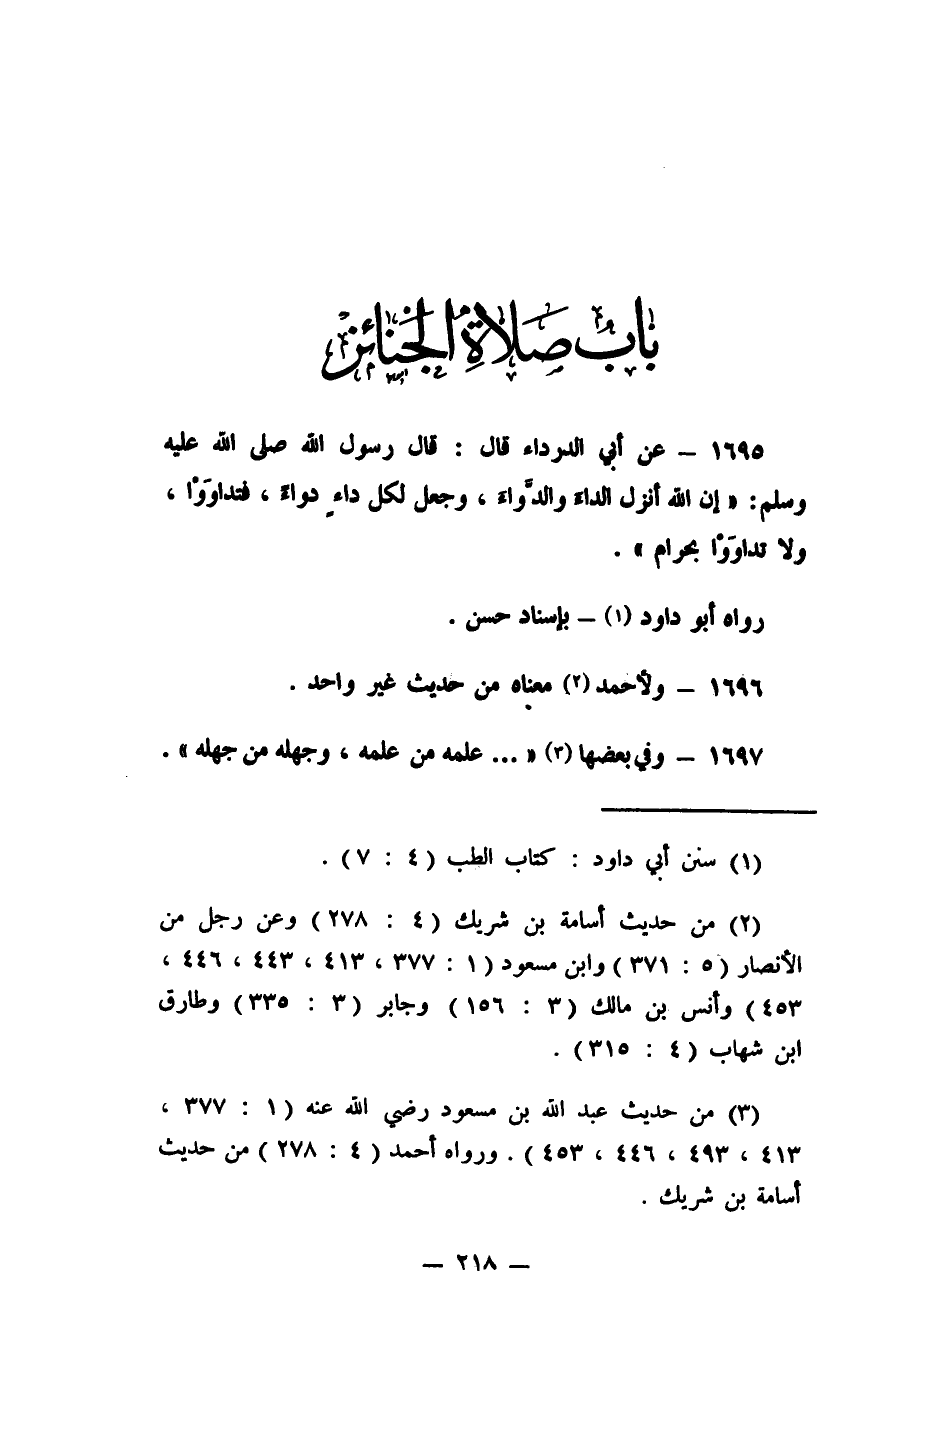 باب صلاة الجنائز
١٦٩٥ – عن أبي الدرداء قال : قال رسول الله صلى الله عليه
وسلم : « إن الله أنزل الداءَ والدَّواءَ ، وجعل لكل داءٍ دواءً ، فتداوَوْا ،
ولا تداوَوْا بحرام » .
رواه أبو داود (١) – بإسناد حسن .
١٦٩٦ – ولأحمد (٢) معناه من حديث غير واحد .
١٦٩٧ – وفي بعضها (٣) « ... علمه من علمه ، وجهله من جهله » .
(١) سنن أبي داود : كتاب الطب ( ٤ : ٧ ) .
(٢) من حديث أسامة بن شريك ( ٤ : ٢٧٨ ) وعن رجل من
الأنصار ( ٥ : ٣٧١ ) وابن مسعود ( ١ : ٣٧٧ ، ٤١٣ ، ٤٤٣ ، ٤٤٦ ،
٤٥٣ ) وأنس بن مالك ( ٣ : ١٥٦ ) وجابر ( ٣ : ٣٣٥ ) وطارق
ابن شهاب ( ٤ : ٣١٥ ) .
(٣) من حديث عبد الله بن مسعود رضي الله عنه ( ١ : ٣٧٧ ،
٤١٣ ، ٤٩٣ ، ٤٤٦ ، ٤٥٣ ) . ورواه أحمد ( ٤ : ٢٧٨ ) من حديث
أسامة بن شريك .
– ٢١٨ –